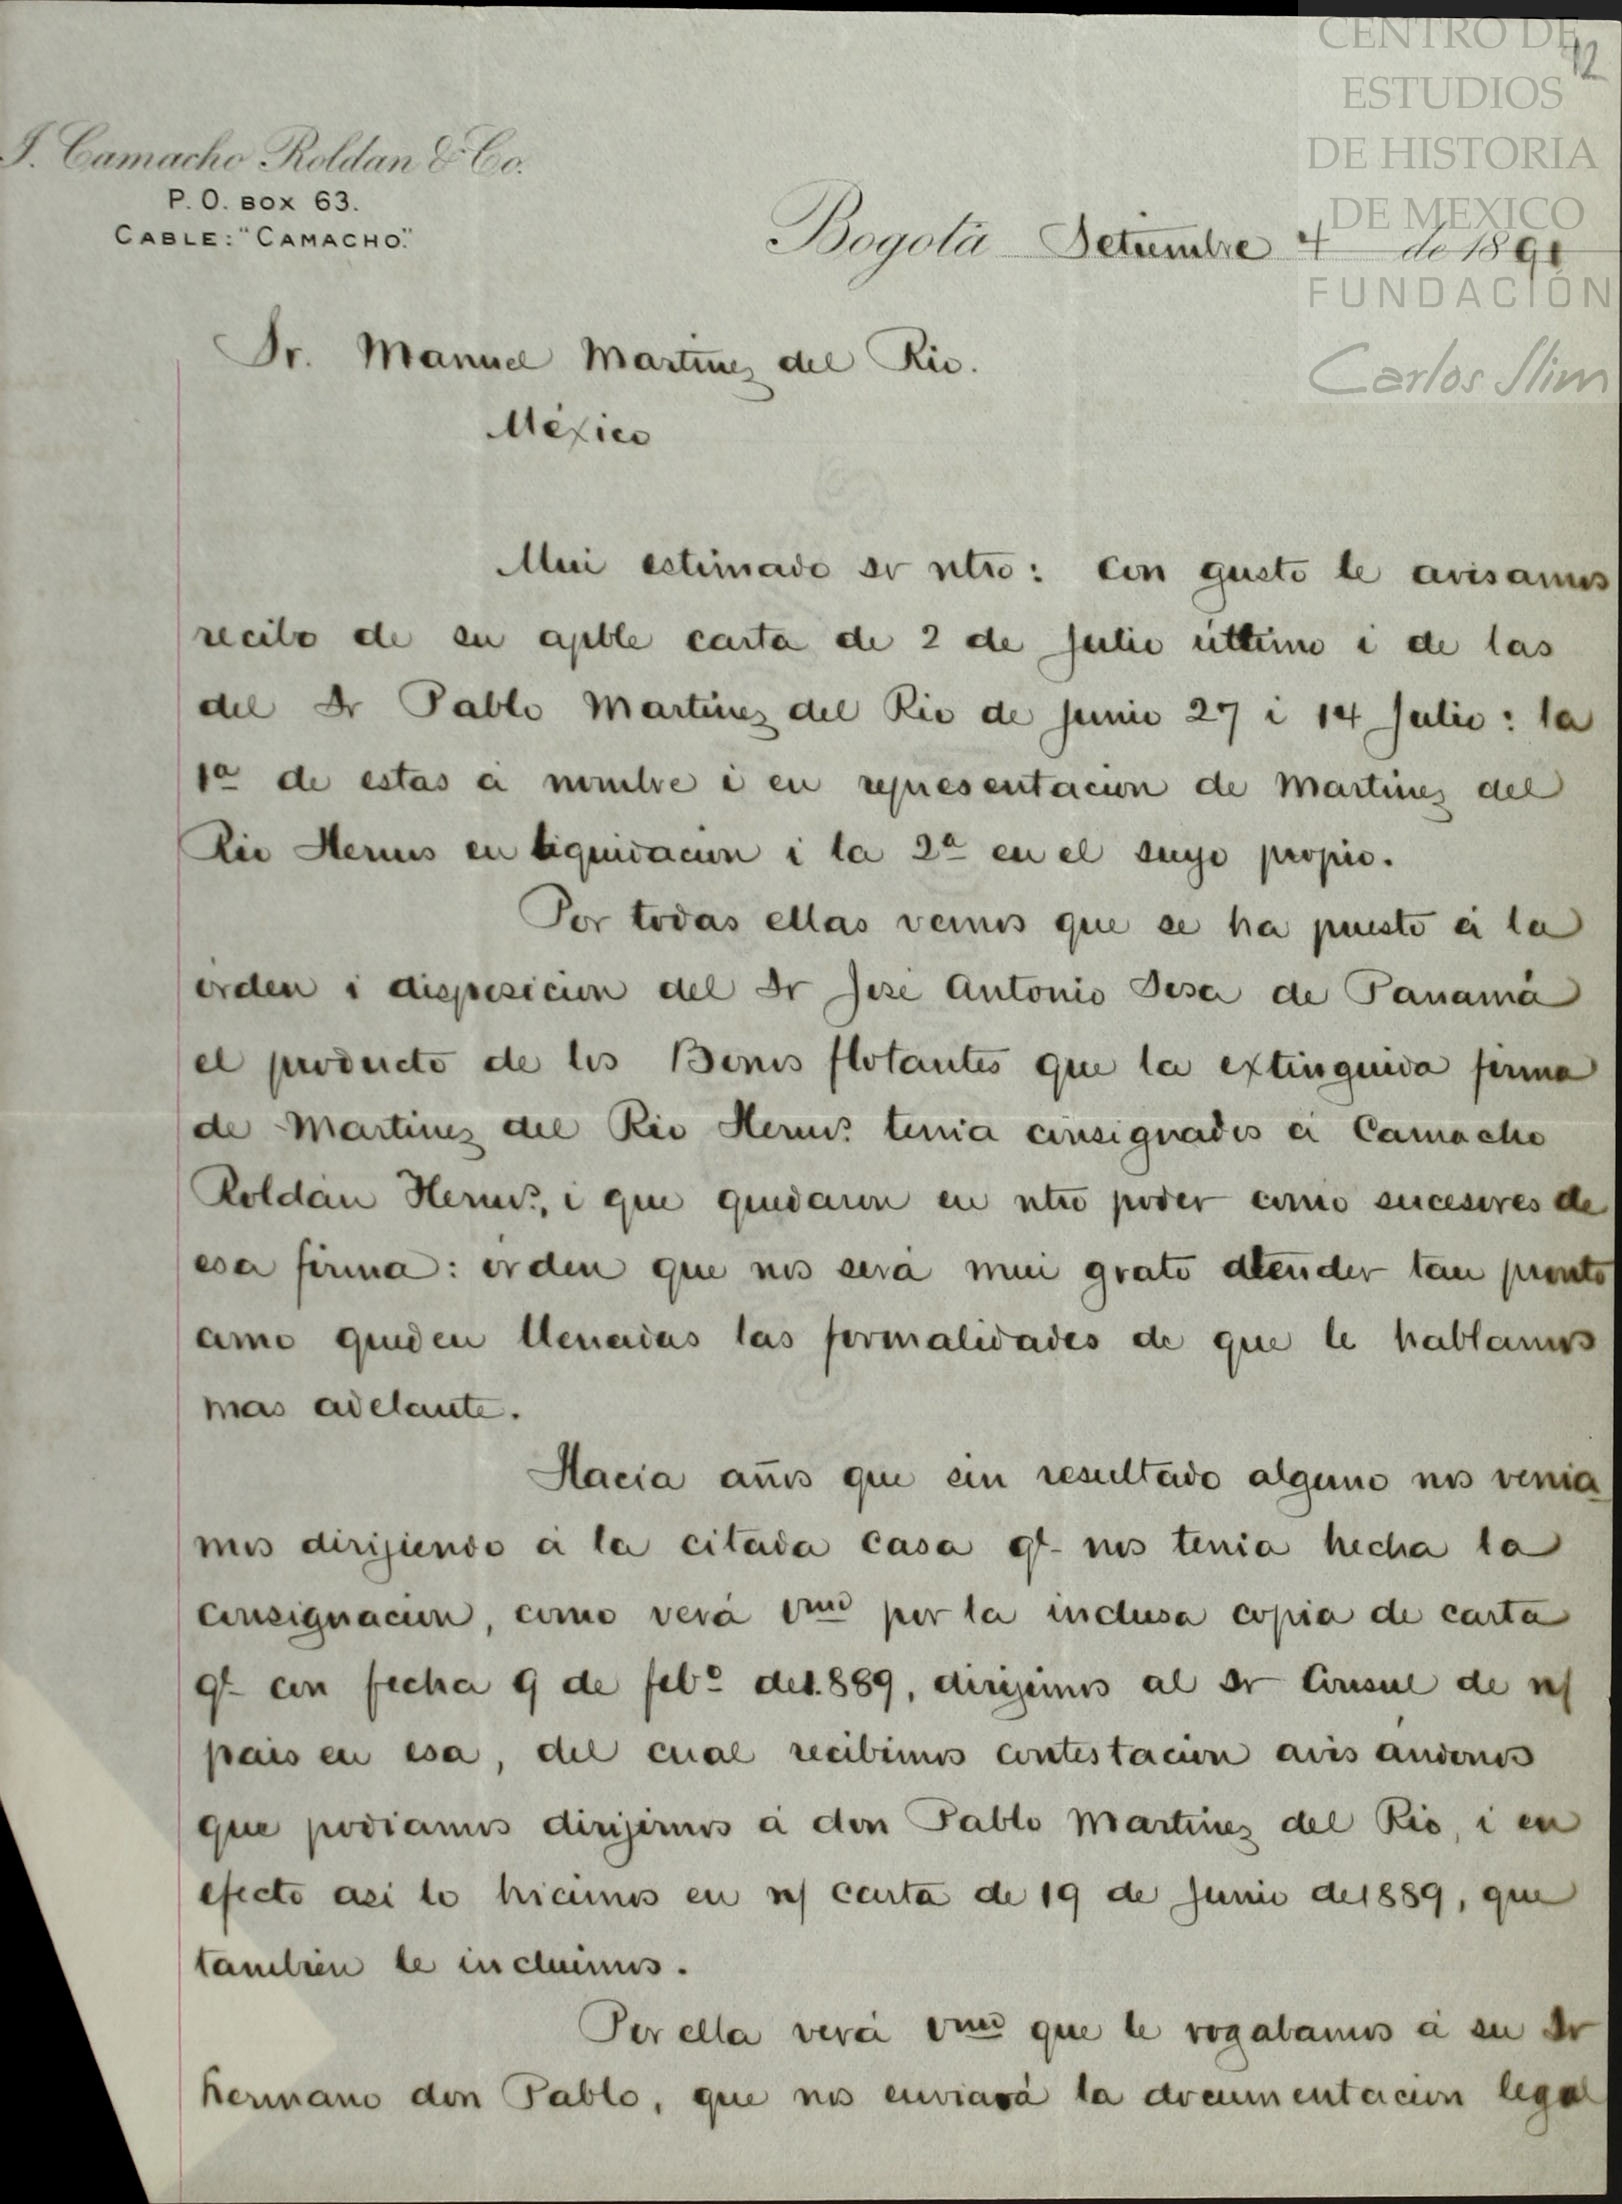 CENTRO DE
ESTUDIOS
DE HISTORIA
DE MEXICO
FUNDACIÓN
Carlos Slim
12
J. Camacho Roldan & Co.
P. O. BOX 63.
CABLE: "CAMACHO."
Bogotá Setiembre 4 de 1891
Sr. Manuel Martinez del Rio.
México
Mui estimado sr ntro: Con gusto le avisamos
recibo de su apble carta de 2 de Julio último i de las
del Sr Pablo Martinez del Rio de Junio 27 i 14 Julio: la
1ª de estas á nombre i en representacion de Martinez del
Rio Hermos en liquidacion i la 2ª en el suyo propio.
Por todas ellas vemos que se ha puesto á la
órden i disposicion del Sr José Antonio Sosa de Panamá
el producto de los Bonos flotantes que la extinguida firma
de Martinez del Rio Hermos. tenia consignados á Camacho
Roldán Hermos., i que quedaron en ntro poder como sucesores de
esa firma: órden que nos será mui grato atender tan pronto
como queden llenadas las formalidades de que le hablamos
mas adelante.
Hacía años que sin resultado alguno nos venia_
mos dirijiendo á la citada casa qe nos tenia hecha la
consignacion, como verá Vmd por la inclusa copia de carta
qe con fecha 9 de febº de 1.889, dirijimos al Sr Consul de n/
pais en esa, del cual recibimos contestacion avisándonos
que podiamos dirijirnos á don Pablo Martinez del Rio, i en
efecto asi lo hicimos en n/ carta de 19 de Junio de 1889, que
tambien le incluimos.
Por ella verá Vmd que le rogabamos á su Sr
hermano don Pablo, que nos enviará la documentacion legal